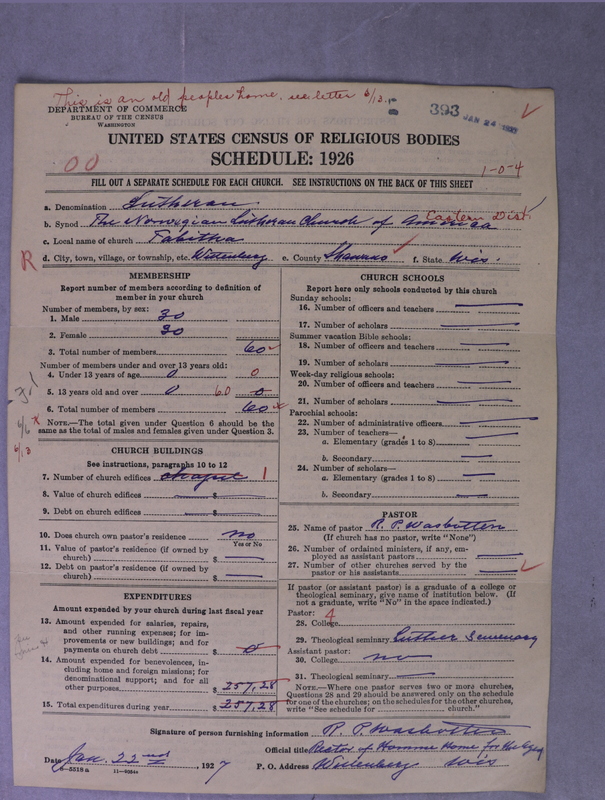 This is an old peoples home. see letter 6/13.
DEPARTMENT OF COMMERCE
BUREAU OF THE CENSUS
WASHINGTON
393 JAN 24 1927
UNITED STATES CENSUS OF RELIGIOUS BODIES
SCHEDULE: 1926
00
1-0-4
FILL OUT A SEPARATE SCHEDULE FOR EACH CHURCH. SEE INSTRUCTIONS ON THE BACK OF THIS SHEET
a. Denomination Lutheran
b. Synod The Norwegian Lutheran Church of America Eastern Dist.
c. Local name of church Tabitha
d. City, town, village, or township, etc. Wittenberg e. County Shawano f. State Wis.
R
MEMBERSHIP
Report number of members according to definition of
member in your church
Number of members, by sex:
1. Male 30
2. Female 30
3. Total number of members 60
Number of members under and over 13 years old:
4. Under 13 years of age 0 0
5. 13 years old and over 0 60 0
6. Total number of members 60
NOTE.—The total given under Question 6 should be
same as the total of males and females given under Question 3.
6/13
CHURCH BUILDINGS
See instructions, paragraphs 10 to 12
7. Number of church edifices chapel 1
8. Value of church edifices $
9. Debt on church edifices $
10. Does church own pastor's residence no
Yes or No
11. Value of pastor's residence (if owned by
church) $
12. Debt on pastor's residence (if owned by
church) $
EXPENDITURES
Amount expended by your church during last fiscal year
13. Amount expended for salaries, repairs,
and other running expenses; for im-
provements or new buildings; and for
payments on church debt $ 0
14. Amount expended for benevolences, in-
cluding home and foreign missions; for
denominational support; and for all
other purposes $ 257,28
15. Total expenditures during year $ 257,28
CHURCH SCHOOLS
Report here only schools conducted by this church
Sunday schools:
16. Number of officers and teachers
17. Number of scholars
Summer vacation Bible schools:
18. Number of officers and teachers
19. Number of scholars
Week-day religious schools:
20. Number of officers and teachers
21. Number of scholars
Parochial schools:
22. Number of administrative officers
23. Number of teachers—
a. Elementary (grades 1 to 8)
b. Secondary
24. Number of scholars—
a. Elementary (grades 1 to 8)
b. Secondary
PASTOR
25. Name of pastor R. P. Wasbotten
(If church has no pastor, write "None")
26. Number of ordained ministers, if any, em-
ployed as assistant pastors
27. Number of other churches served by the
pastor or his assistants
If pastor (or assistant pastor) is a graduate of a college or
theological seminary, give name of institution below. (If
not a graduate, write "No" in the space indicated.)
Pastor: 4
28. College
29. Theological seminary Luther Seminary
Assistant pastor:
30. College no
31. Theological seminary
NOTE.—Where one pastor serves two or more churches,
Questions 28 and 29 should be answered only on the schedule
for one of the churches; on the schedules for the other churches,
write "See schedule for church."
Signature of person furnishing information R. P. Wasbotten
Official title Pastor of Homme Home for the Aged
Date Jan. 22nd, 1927 P. O. Address Wittenberg Wis
8—5518a 11—90944